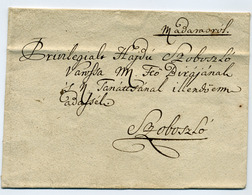 Madarasról.
Privilegialt Hajdú Szoboszló
Várossa N. Ttó Birájának
's Tanátsának illendőem
adassék.
Szoboszló